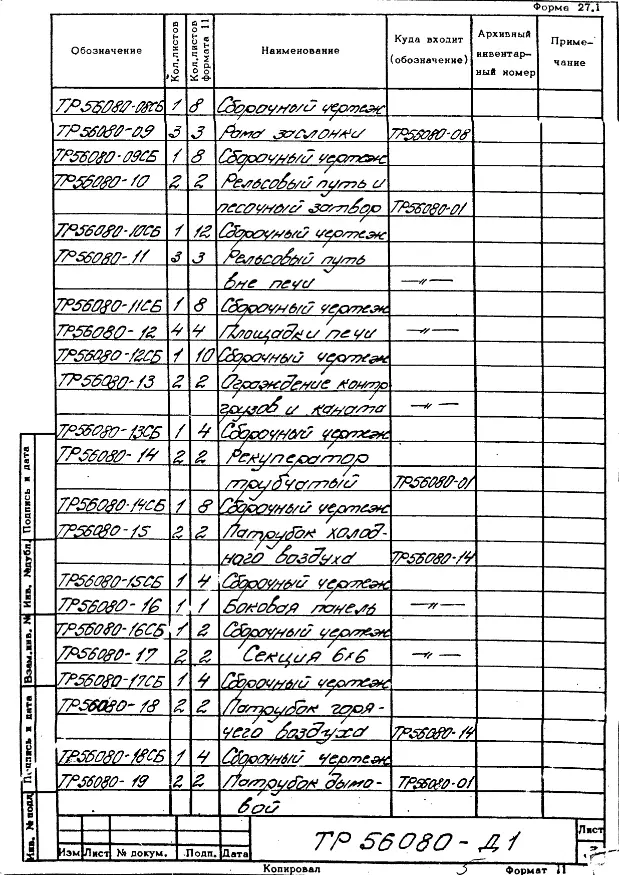 Форма 27.1
Обозначение Кол.листов Кол.листов формата 11 Наименование Куда входит (обозначение) Архивный инвентарный номер Примечание
ТР56080-08СБ 1 8 Сборочный чертеж
ТР56080-09 3 3 Рама заслонки ТР56080-08
ТР56080-09СБ 1 8 Сборочный чертеж
ТР56080-10 2 2 Рельсовый путь и
песочный затвор ТР56080-01
ТР56080-10СБ 1 12 Сборочный чертеж
ТР56080-11 3 3 Рельсовый путь
вне печи —〃—
ТР56080-11СБ 1 8 Сборочный чертеж
ТР56080-12 4 4 Площадки печи —〃—
ТР56080-12СБ 1 10 Сборочный чертеж
ТР56080-13 2 2 Ограждение контр
грузов и каната —〃—
ТР56080-13СБ 1 4 Сборочный чертеж
ТР56080-14 2 2 Рекуператор
трубчатый ТР56080-01
ТР56080-14СБ 1 8 Сборочный чертеж
ТР56080-15 2 2 Патрубок холод-
ного воздуха ТР56080-14
ТР56080-15СБ 1 4 Сборочный чертеж
ТР56080-16 1 1 Боковая панель —〃—
ТР56080-16СБ 1 2 Сборочный чертеж
ТР56080-17 2 2 Секция 6×6 —〃—
ТР56080-17СБ 1 4 Сборочный чертеж
ТР56080-18 2 2 Патрубок горя-
чего воздуха ТР56080-14
ТР56080-18СБ 1 4 Сборочный чертеж
ТР56080-19 2 2 Патрубок дымо- ТР56080-01
вой
Инв. № подл. Подпись и дата Взам.инв. № Инв. № дубл. Подпись и дата
ТР 56080-Д1
Лист
Изм Лист № докум. Подп. Дата
Копировал 5 Формат 11